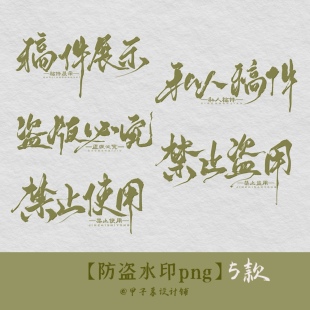 稿件展示
—稿件展示—
私人稿件
—私人稿件—
盗版必究
—盗版必究—
禁止盗用
—禁止盗用—
禁止使用
—禁止使用—
【防盗水印png】5款